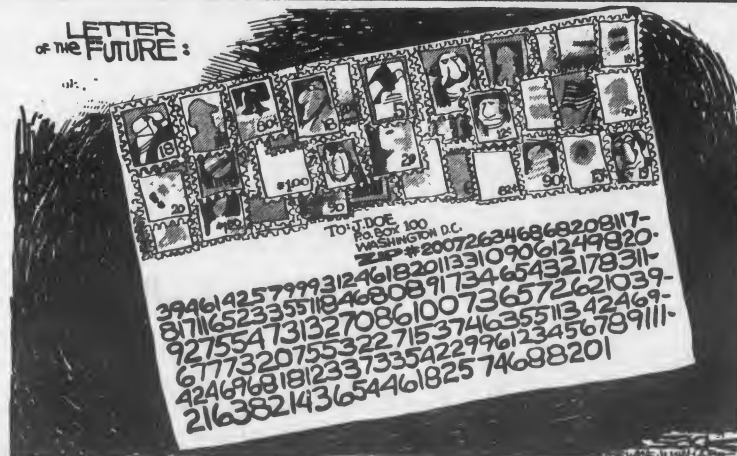 LETTER
OF THE FUTURE:
18¢
18
60¢
18
15
12¢
90¢
20
$1.00
2¢
82¢
90¢
15¢
19
$1.50
50
TO: J. DOE
P.O. BOX 100
WASHINGTON D.C.
ZIP #20072634686820811 7-
3946142579993124618201133109061249820-
81711652335511846808917346543217831 1-
9275547313270861007365726210 39-
6777320755322715374635511342469-
42469681812337335422996123456789111-
2163821436544618257468820 1